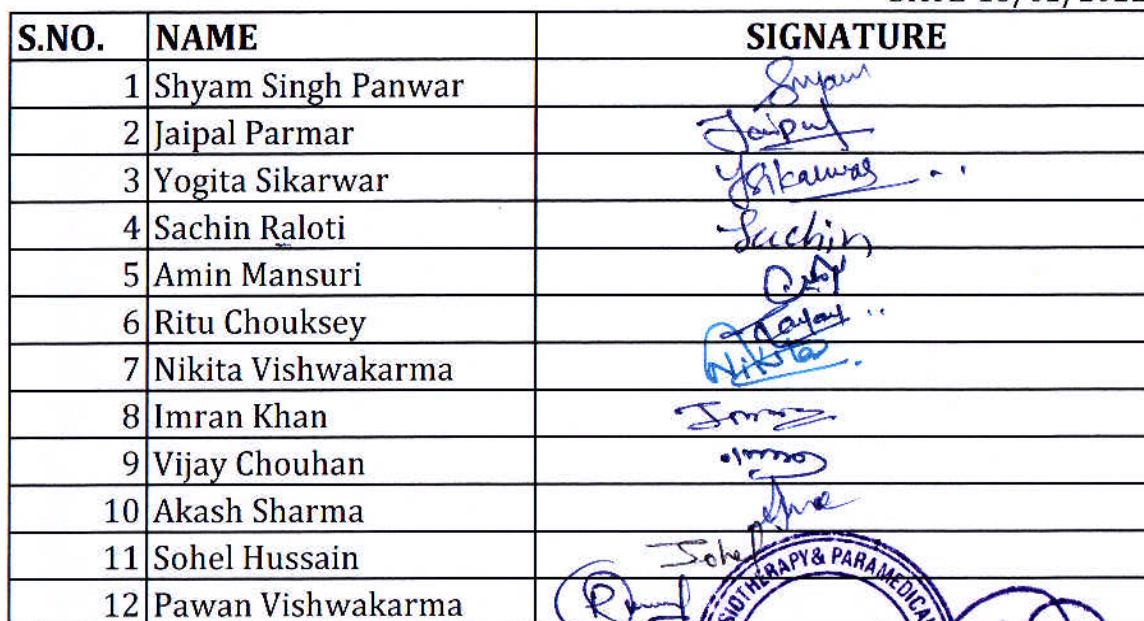 S.NO. NAME SIGNATURE
1 Shyam Singh Panwar Shyam
2 Jaipal Parmar Jaipal
3 Yogita Sikarwar YSikarwar
4 Sachin Raloti Sachin
5 Amin Mansuri
6 Ritu Chouksey
7 Nikita Vishwakarma Nikita
8 Imran Khan
9 Vijay Chouhan
10 Akash Sharma
11 Sohel Hussain Sohel
12 Pawan Vishwakarma